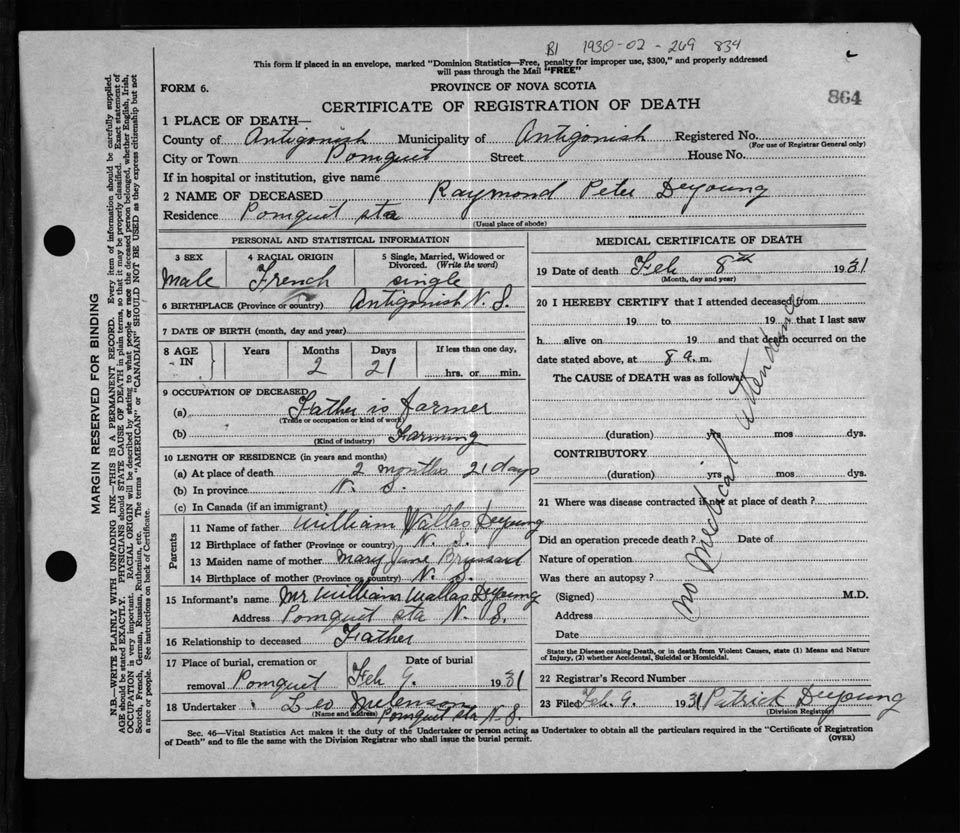 B1 1930-02-269 834
This form if placed in an envelope, marked "Dominion Statistics—Free, penalty for improper use, $300," and properly addressed
will pass through the Mail "FREE"
FORM 6.
PROVINCE OF NOVA SCOTIA
864
CERTIFICATE OF REGISTRATION OF DEATH
1 PLACE OF DEATH—
County of Antigonish Municipality of Antigonish Registered No.
(For use of Registrar General only)
City or Town Pomquit Street House No.
If in hospital or institution, give name
2 NAME OF DECEASED Raymond Peter Deyoung
Residence Pomquit sta
(Usual place of abode)
PERSONAL AND STATISTICAL INFORMATION
3 SEX 4 RACIAL ORIGIN 5 Single, Married, Widowed or Divorced. (Write the word)
Male French single
6 BIRTHPLACE (Province or country) Antigonish N. S.
7 DATE OF BIRTH (month, day and year)
8 AGE IN Years Months Days If less than one day,
2 21 hrs. or min.
9 OCCUPATION OF DECEASED
(a) Father is farmer
(Trade or occupation or kind of work)
(b) Farming
(Kind of industry)
10 LENGTH OF RESIDENCE (in years and months)
(a) At place of death 2 months 21 days
(b) In province N. S.
(c) In Canada (if an immigrant)
Parents
11 Name of father William Wallas Deyoung
12 Birthplace of father (Province or country) N. S.
13 Maiden name of mother Mary Jane
14 Birthplace of mother (Province or country) N. S.
15 Informant's name Mr William Wallas Deyoung
Address Pomquit sta N. S.
16 Relationship to deceased Father
17 Place of burial, cremation or removal Pomquit Date of burial Feb 9. 1931
18 Undertaker Leo
(Name and address) Pomquit sta N. S.
MEDICAL CERTIFICATE OF DEATH
19 Date of death Feb 8th 1931
(Month, day and year)
20 I HEREBY CERTIFY that I attended deceased from
19 to 19 that I last saw
h alive on 19 and that death occurred on the
date stated above, at 8 a. m.
The CAUSE of DEATH was as follows
(duration) yrs mos dys.
CONTRIBUTORY
(duration) yrs mos dys.
No Medical attendance
21 Where was disease contracted if not at place of death?
Did an operation precede death? Date of
Nature of operation
Was there an autopsy?
(Signed) M.D.
Address
Date
State the Disease causing Death, or in death from Violent Causes, state (1) Means and Nature
of Injury, (2) whether Accidental, Suicidal or Homicidal.
22 Registrar's Record Number
23 Filed Feb. 9. 1931 Patrick Deyoung
(Division Registrar)
Sec. 46—Vital Statistics Act makes it the duty of the Undertaker or person acting as Undertaker to obtain all the particulars required in the "Certificate of Registration
of Death" and to file the same with the Division Registrar who shall issue the burial permit.
(OVER)
MARGIN RESERVED FOR BINDING
N.B.—WRITE PLAINLY WITH UNFADING INK—THIS IS A PERMANENT RECORD. Every item of information should be carefully supplied.
AGE should be stated EXACTLY. PHYSICIANS should STATE CAUSE OF DEATH in plain terms, so that it may be properly classified. Exact statement of
OCCUPATION is very important. RACIAL ORIGIN will be described by stating to what people or race the deceased person belonged, whether English, Irish,
Scotch, French, German, Russian, Ruthenian, etc. The terms "AMERICAN" or "CANADIAN" SHOULD NOT BE USED as they express citizenship but not
a race or people. See instructions on back of Certificate.